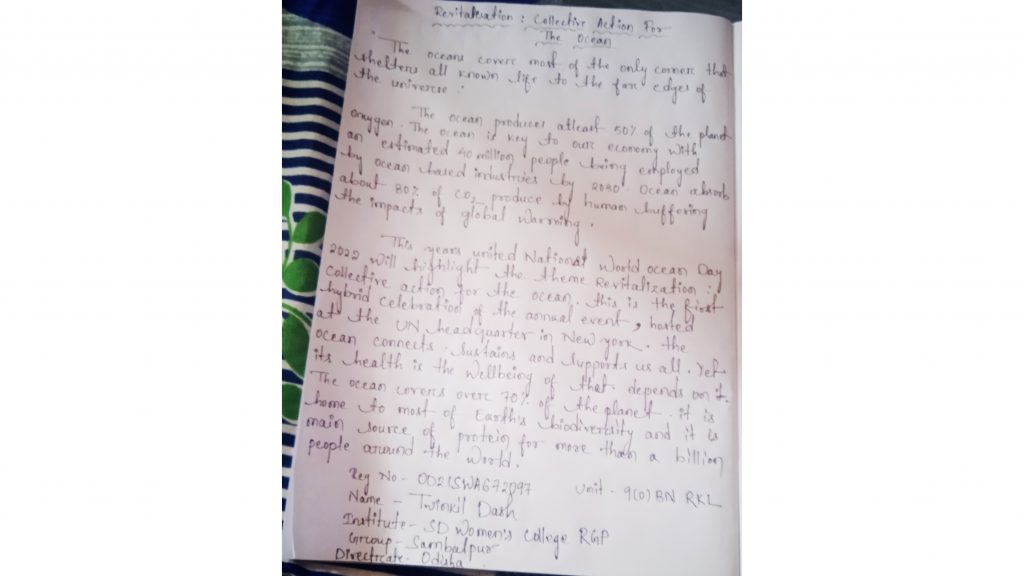 Revitalisation : Collective Action For
The Ocean
" The oceans covers most of the only corner that
shelters all known life to the far edges of
the universe ."
The ocean produces atleast 50% of the planet
oxygen. The ocean is key to our economy with
an estimated 40 million people being employed
by ocean based industries by 2030 Ocean absorb
about 30% of CO2 produce by human buffering
the impacts of global warming .
This years united National World ocean Day
2022 will highlight the theme Revitalization :
Collective action for the ocean. this is the first
hybrid celebration of the annual event, hosted
at the UN headquarter in New york. the
ocean connects. sustains and supports us all. Yet
its health is the wellbeing of that depends on it.
The ocean covers over 70% of the planet. it is
home to most of Earth's biodiversity and it is
main source of protein for more than a billion
people around the world.
Reg No - OD21SWA672097 Unit - 9(O) BN RKL
Name - Twinkil Dash
Institute - SD Women's College RGP
Group - Sambalpur
Directrate - Odisha